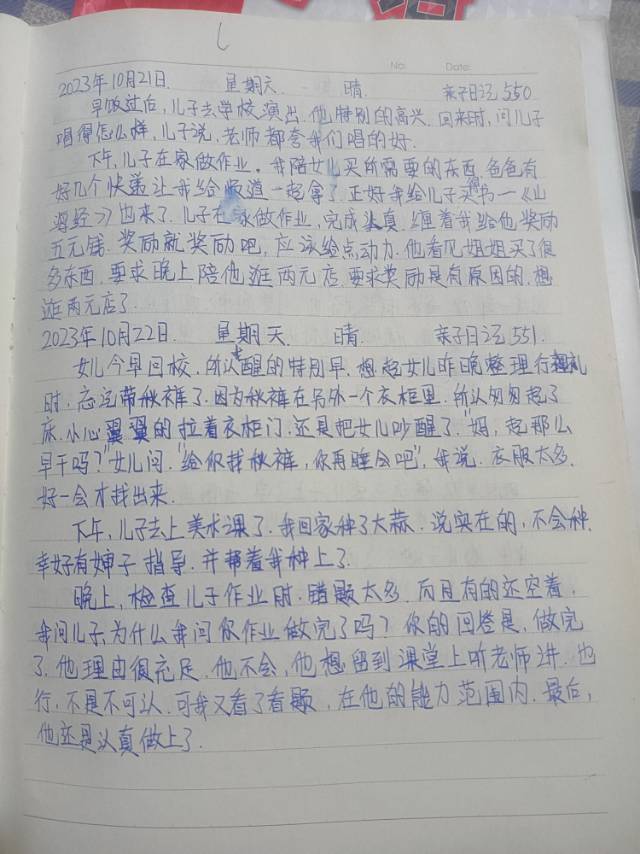 No: Date:
2023年10月21日. 星期天. 晴. 亲子日记550.
早饭过后,儿子去学校演出.他特别的高兴.回来时,问儿子
唱得怎么样,儿子说,老师都夸我们唱的好.
下午,儿子在家做作业,我陪女儿买所需要的东西.爸爸有
好几个快递让我给顺道一起拿了.正好我给儿子买的书一《山
海经》也来了.儿子在家做作业,完成认真.缠着我给他奖励
五元钱.奖励就奖励吧,应该给点动力.他看见姐姐买了很
多东西.要求晚上陪他逛两元店.要求奖励是有原因的.想
逛两元店了.
2023年10月22日. 星期天. 晴. 亲子日记551.
女儿今早回校.所以醒的特别早.想起女儿昨晚整理行李
时.忘记带秋裤了.因为秋裤在另外一个衣柜里.所以匆匆起了
床.小心翼翼的拉着衣柜门.还是把女儿吵醒了."妈,起那么
早干吗?"女儿问."给你找秋裤,你再睡会吧",我说.衣服太多.
好一会才找出来.
下午,儿子去上美术课了.我回家种了大蒜.说实在的,不会种.
幸好有婶子指导.并帮着我种上了.
晚上,检查儿子作业时.错题太多.而且有的还空着.
我问儿子,为什么我问你作业做完了吗?你的回答是,做完
了.他理由很充足.他不会,他想留到课堂上听老师讲.也
行.不是不可以.可我又看了看题,在他的能力范围内.最后,
他还是认真做上了.